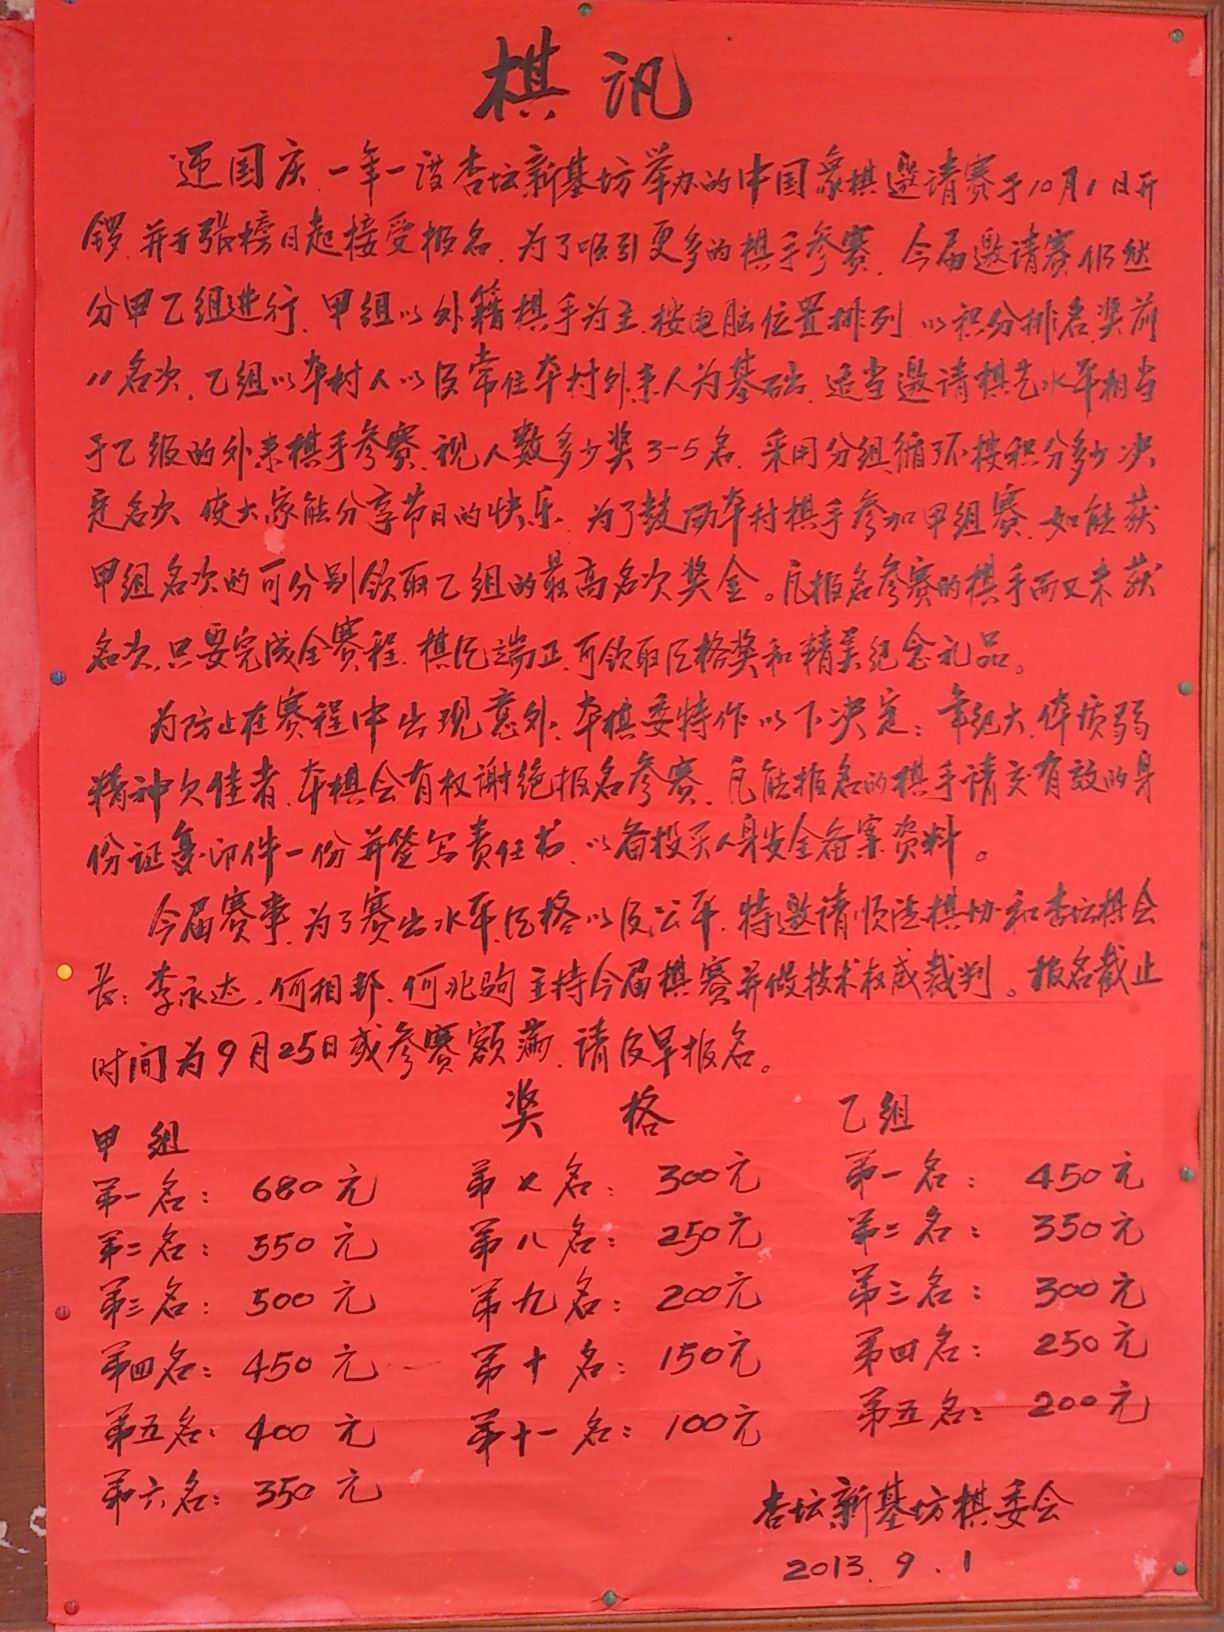 棋讯
迎国庆、一年一度杏坛新基坊举办的中国象棋邀请赛于10月1日开
锣、并于张榜日起接受报名、为了吸引更多的棋手参赛、今届邀请赛仍然
分甲乙组进行、甲组以外籍棋手为主、按电脑位置排列、以积分排名奖前
11名次、乙组以本村人以及常住本村外来人为基础、适当邀请棋艺水平相当
于乙级的外来棋手参赛、视人数多少奖3-5名、采用分组循环按积分多少决
定名次、使大家能分享节日的快乐、为了鼓励本村棋手参加甲组赛、如能获
甲组名次的可分别领取乙组的最高名次奖金。凡报名参赛的棋手而又未获
名次、只要完成全赛程、棋风端正、可领取风格奖和精美纪念礼品。
为防止在赛程中出现意外、本棋委特作以下决定：年纪大、体质弱
精神欠佳者、本棋会有权谢绝报名参赛、凡能报名的棋手请交有效的身
份证复印件一份并签写责任书、以备投买人身安全备案资料。
今届赛事、为了赛出水平、风格以及公平、特邀请顺德棋协和杏坛棋会
长：李永达、何相邦、何兆驹主持今届棋赛并做技术权威裁判。报名截止
时间为9月25日或参赛额满、请及早报名。
奖格
甲组
第一名：680元
第二名：550元
第三名：500元
第四名：450元
第五名：400元
第六名：350元
第七名：300元
第八名：250元
第九名：200元
第十名：150元
第十一名：100元
乙组
第一名：450元
第二名：350元
第三名：300元
第四名：250元
第五名：200元
杏坛新基坊棋委会
2013.9.1